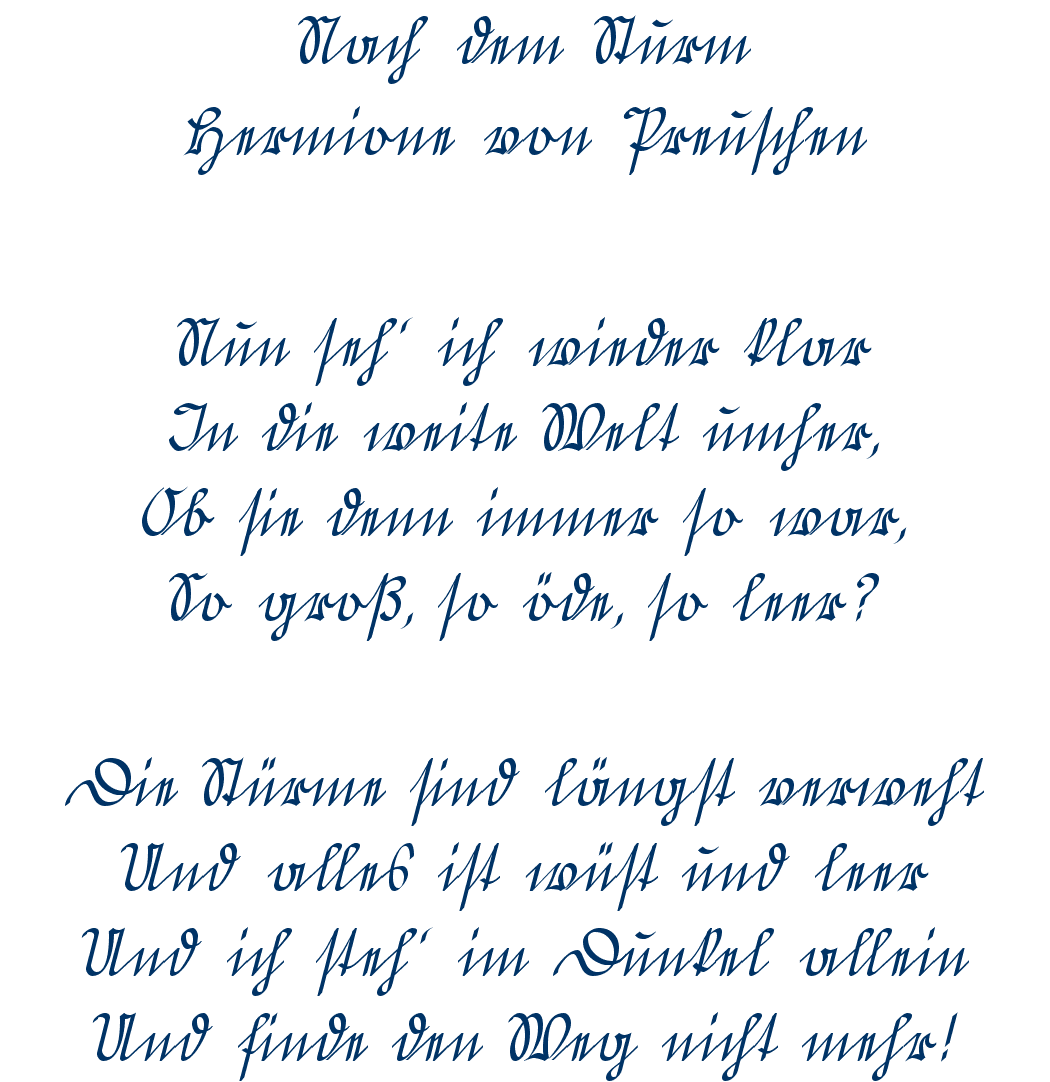 Nach dem Sturm
Hermione von Preuschen
Nun seh' ich wieder klar
In die weite Welt umher,
Ob sie denn immer so war,
So groß, so öde, so leer?
Die Stürme sind längst verweht
Und alles ist wüst und leer
Und ich steh' im Dunkel allein
Und finde den Weg nicht mehr!